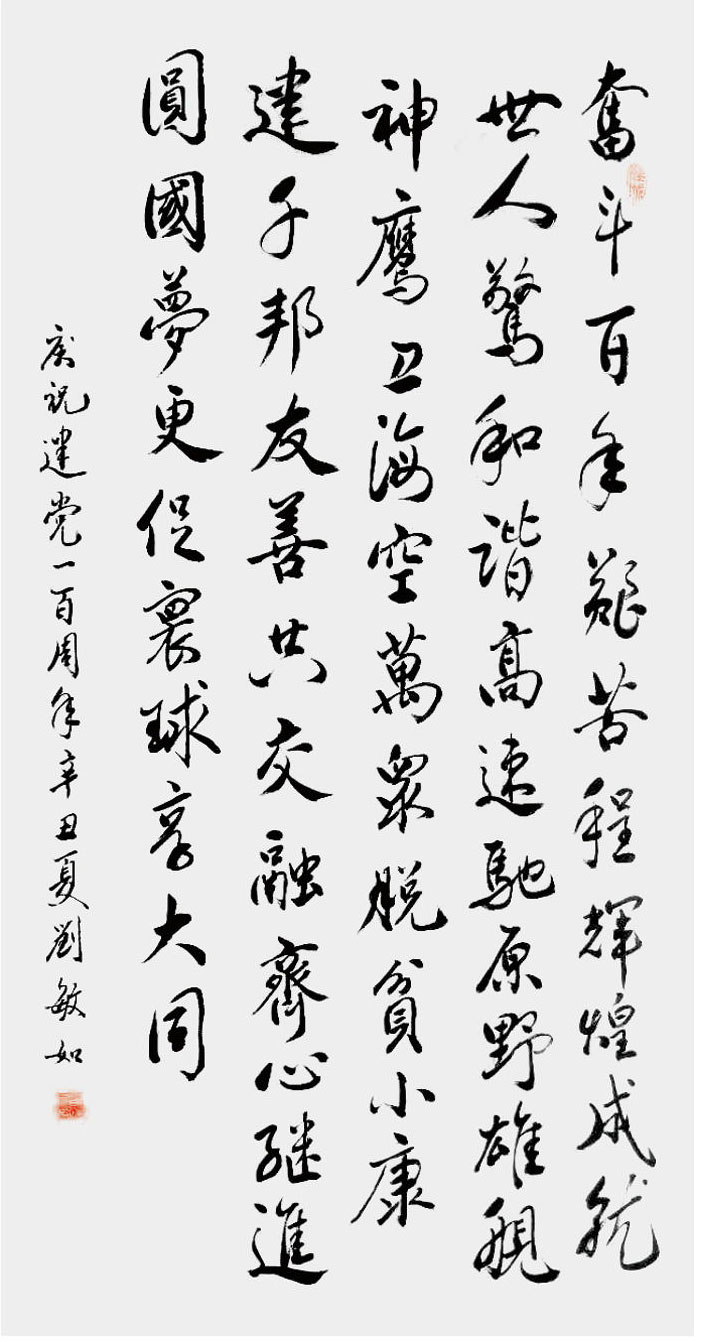 奮斗百年艱苦程輝煌成就
世人驚和諧高速馳原野雄舰
神鷹卫海空萬眾脱貧小康
建千邦友善共交融齊心继進
圓國夢更促寰球享大同
庆祝建党一百周年辛丑夏劉敏如